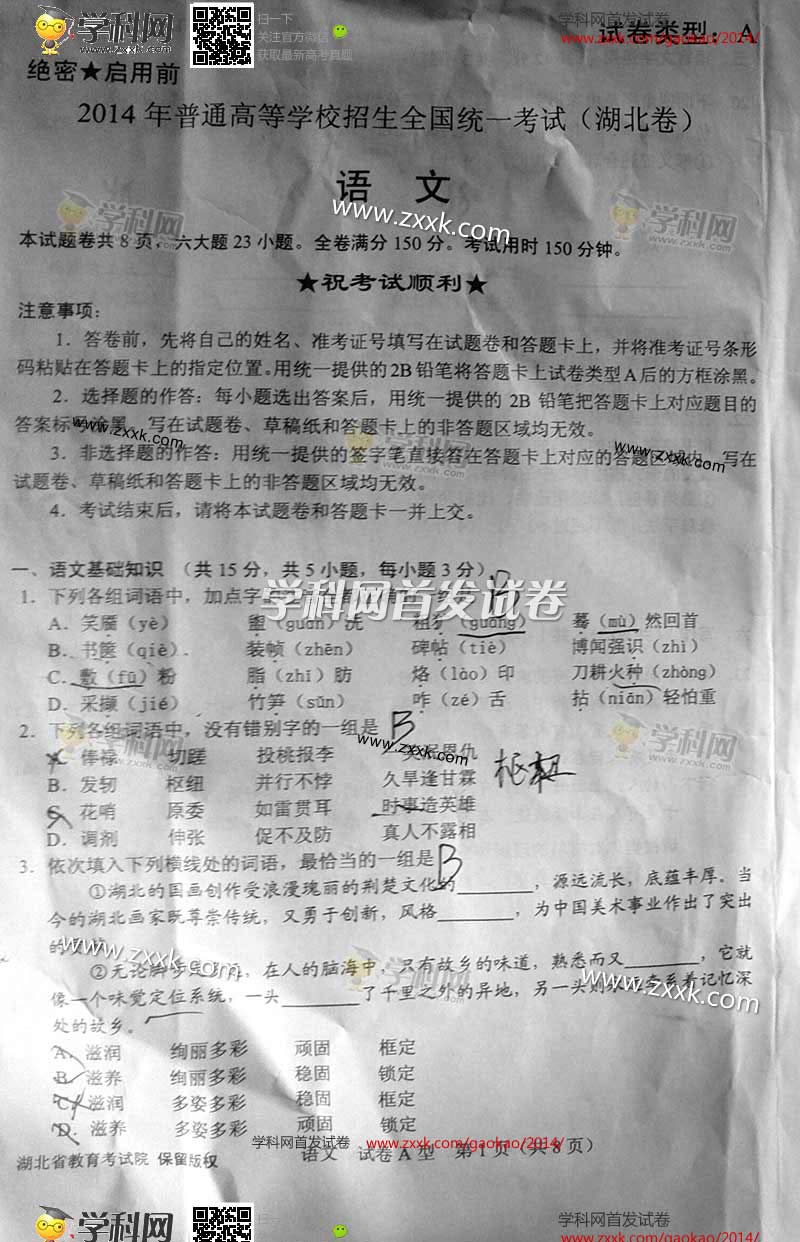 学科网
扫一扫
关注官方微信
获取最新高考真题
学科网首发试卷
www.zxxk.com/gaokao/2014/
试卷类型：A
绝密★启用前
2014年普通高等学校招生全国统一考试（湖北卷）
语 文
学科网
www.zxxk.com
学科网
本试题卷共8页，六大题23小题。全卷满分150分。考试用时150分钟。
★祝考试顺利★
注意事项：
1．答卷前，先将自己的姓名、准考证号填写在试题卷和答题卡上，并将准考证号条形
码粘贴在答题卡上的指定位置。用统一提供的2B铅笔将答题卡上试卷类型A后的方框涂黑。
2．选择题的作答：每小题选出答案后，用统一提供的2B铅笔把答题卡上对应题目的
答案标号涂黑。写在试题卷、草稿纸和答题卡上的非答题区域均无效。
www.zxxk.com
学科网
www.zxxk.com
3．非选择题的作答：用统一提供的签字笔直接答在答题卡上对应的答题区域内。写在
试题卷、草稿纸和答题卡上的非答题区域均无效。
4．考试结束后，请将本试题卷和答题卡一并上交。
一、语文基础知识（共15分，共5小题，每小题3分）
1．下列各组词语中，加点字 B
学科网首发试卷
A．笑靥（yè） 盥（guàn）洗 （guǎng） 蓦（mù）然回首
B．书箧（qiè） 装帧（zhēn） 碑帖（tiè） 博闻强识（zhì）
C．敷（fū）粉 脂（zhī）肪 烙（lào）印 刀耕火种（zhòng）
D．采撷（jié） 竹笋（sǔn） 咋（zé）舌 拈（niān）轻怕重
2．下列各组词语中，没有错别字的一组是 B
学科网
www.zxxk.com
学科网
A．俸禄 切蹉 投桃报李 恩仇
B．发轫 枢纽 并行不悖 久旱逢甘霖 枢纽
C．花哨 原委 如雷贯耳 时事造英雄
D．调剂 伸张 促不及防 真人不露相
3．依次填入下列横线处的词语，最恰当的一组是 B
①湖北的国画创作受浪漫瑰丽的荆楚文化的________，源远流长，底蕴丰厚。当
今的湖北画家既尊崇传统，又勇于创新，风格________，为中国美术事业作出了突出
的
www.zxxk.com
学科网
②无论脚步 ，在人的脑海中，只有故乡的味道，熟悉而又________，它就
像一个味觉定位系统，一头________了千里之外的异地，另一头则 系着记忆深
www.zxxk.com
处的故乡。
A．滋润 绚丽多彩 顽固 框定
B．滋养 绚丽多彩 稳固 锁定
C．滋润 多姿多彩 稳固 框定
D．滋养 多姿多彩 顽固 锁定
学科网首发试卷 www.zxxk.com/gaokao/2014/
湖北省教育考试院 保留版权
语文 试卷A型 第1页（共8页）
学科网
扫一扫
关注官方微信
获取最新高考真题
学科网首发试卷
www.zxxk.com/gaokao/2014/